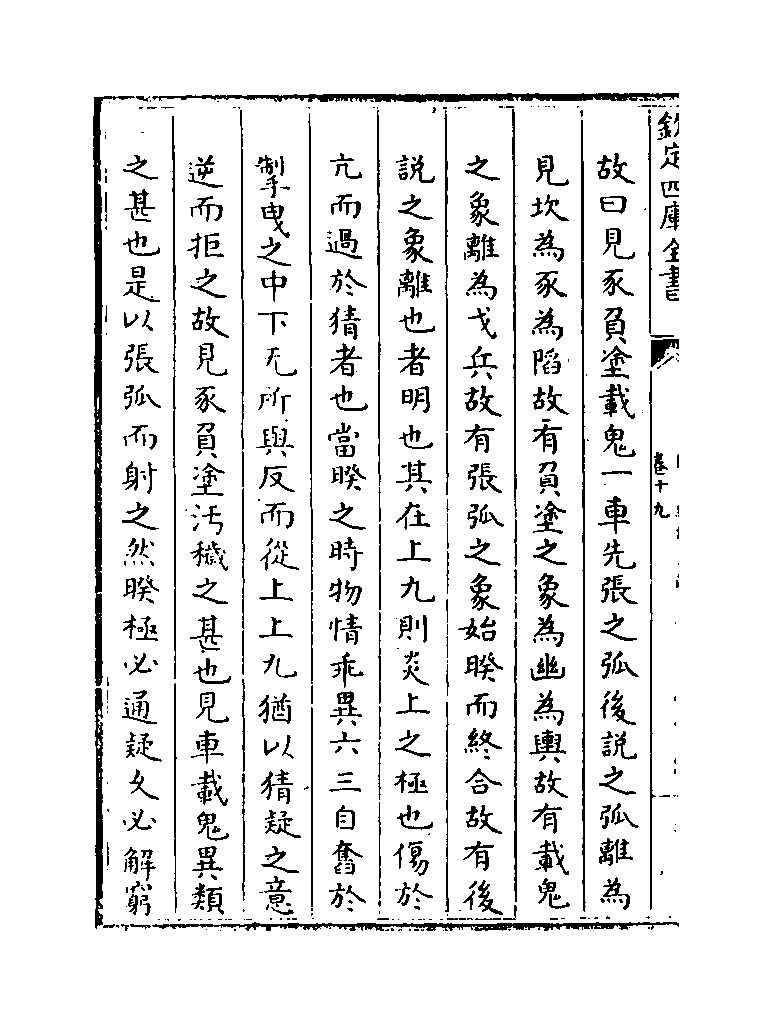 欽定四庫全書
卷十九
故曰見豕負塗載鬼一車先張之弧後説之弧離為
見坎為豕為陷故有負塗之象為幽為輿故有載鬼
之象離為戈兵故有張弧之象始睽而終合故有後
説之象離也者明也其在上九則炎上之極也傷於
亢而過於猜者也當睽之時物情乖異六三自奮於
掣曳之中下无所與反而從上上九猶以猜疑之意
逆而拒之故見豕負塗汚穢之甚也見車載鬼異類
之甚也是以張弧而射之然睽極必通疑久必解窮